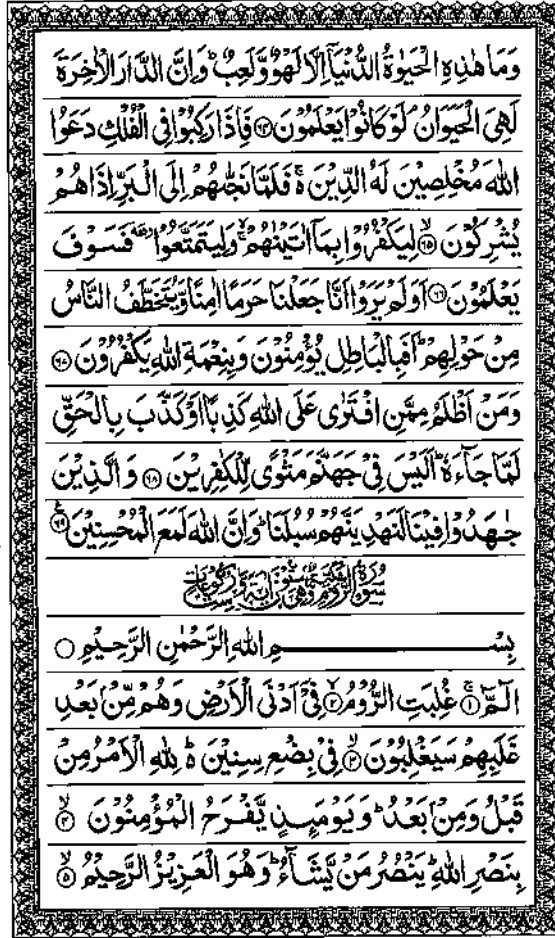 وَمَا هٰذِهِ الْحَيٰوةُ الدُّنْيَآ اِلَّا لَهْوٌ وَّلَعِبٌ ؕ وَاِنَّ الدَّارَ الْاٰخِرَةَ
لَهِىَ الْحَيَوَانُ ۘ لَوْ كَانُوْا يَعْلَمُوْنَ ﴿۶۴﴾ فَاِذَا رَكِبُوْا فِى الْفُلْكِ دَعَوُا
اللّٰهَ مُخْلِصِيْنَ لَهُ الدِّيْنَ ۚ فَلَمَّا نَجّٰىهُمْ اِلَى الْبَرِّ اِذَا هُمْ
يُشْرِكُوْنَ ﴿۶۵﴾ لِيَكْفُرُوْا بِمَآ اٰتَيْنٰهُمْ ۙ وَلِيَتَمَتَّعُوْا ۥ فَسَوْفَ
يَعْلَمُوْنَ ﴿۶۶﴾ اَوَلَمْ يَرَوْا اَنَّا جَعَلْنَا حَرَمًا اٰمِنًا وَّيُتَخَطَّفُ النَّاسُ
مِنْ حَوْلِهِمْ ؕ اَفَبِالْبَاطِلِ يُؤْمِنُوْنَ وَبِنِعْمَةِ اللّٰهِ يَكْفُرُوْنَ ﴿۶۷﴾
وَمَنْ اَظْلَمُ مِمَّنِ افْتَرٰى عَلَى اللّٰهِ كَذِبًا اَوْ كَذَّبَ بِالْحَقِّ
لَمَّا جَآءَهٗ ؕ اَلَيْسَ فِىْ جَهَنَّمَ مَثْوًى لِّلْكٰفِرِيْنَ ﴿۶۸﴾ وَالَّذِيْنَ
جٰهَدُوْا فِيْنَا لَنَهْدِيَنَّهُمْ سُبُلَنَا ؕ وَاِنَّ اللّٰهَ لَمَعَ الْمُحْسِنِيْنَ ﴿۶۹﴾
سُوْرَةُ الرُّوْمِ مَكِّيَّةٌ وَّهِىَ سِتُّوْنَ اٰيَةً
بِسْمِ اللّٰهِ الرَّحْمٰنِ الرَّحِيْمِ ○
الٓمّٓ ۚ ﴿۱﴾ غُلِبَتِ الرُّوْمُ ۙ ﴿۲﴾ فِىْٓ اَدْنَى الْاَرْضِ وَهُمْ مِّنْۢ بَعْدِ
غَلَبِهِمْ سَيَغْلِبُوْنَ ۙ ﴿۳﴾ فِىْ بِضْعِ سِنِيْنَ ؕ لِلّٰهِ الْاَمْرُ مِنْ
قَبْلُ وَمِنْۢ بَعْدُ ؕ وَيَوْمَىِٕذٍ يَّفْرَحُ الْمُؤْمِنُوْنَ ۙ ﴿۴﴾
بِنَصْرِ اللّٰهِ ؕ يَنْصُرُ مَنْ يَّشَآءُ ؕ وَهُوَ الْعَزِيْزُ الرَّحِيْمُ ۙ ﴿۵﴾